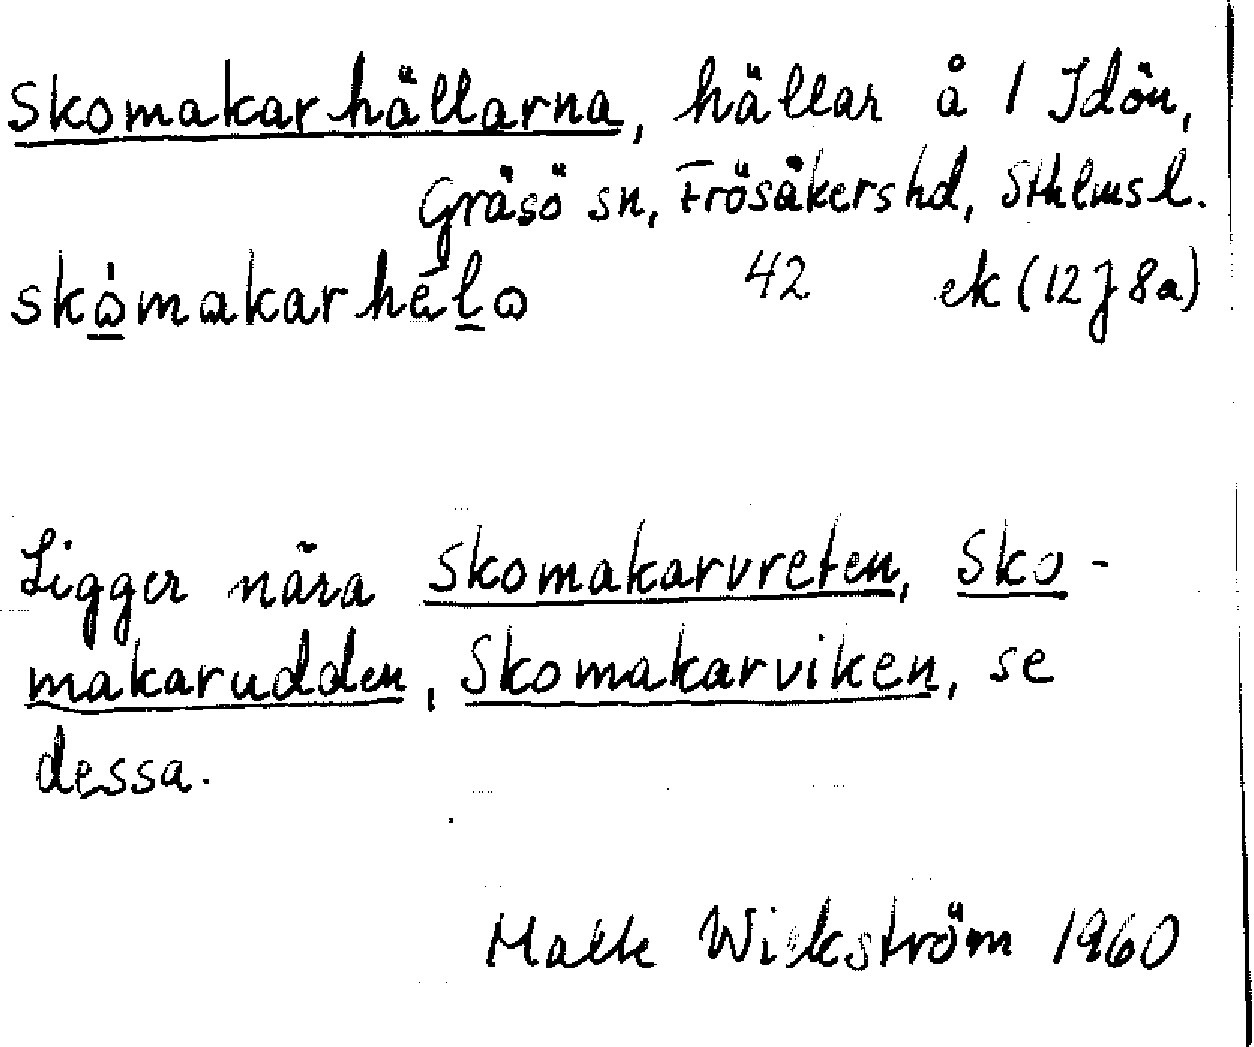 Skomakarhällarna, hällar å 1 Idön,
Gräsö sn, Frösåkers hd, Sthlms l.
skòmakarhélα 42 ek (12 J 8a)
Ligger nära Skomakarvreten, Sko-
makarudden, Skomakarviken, se
dessa.
Wickström 1960